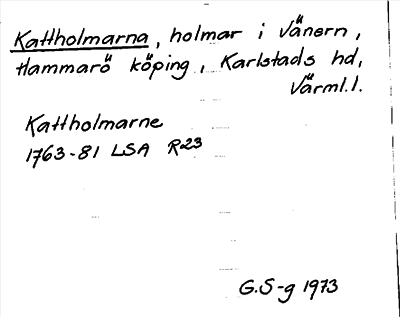 Kattholmarna, holmar i Vänern,
Hammarö köping, Karlstads hd,
Värml.l.
Kattholmarne
1763-81 LSA R23
G.S-g 1973